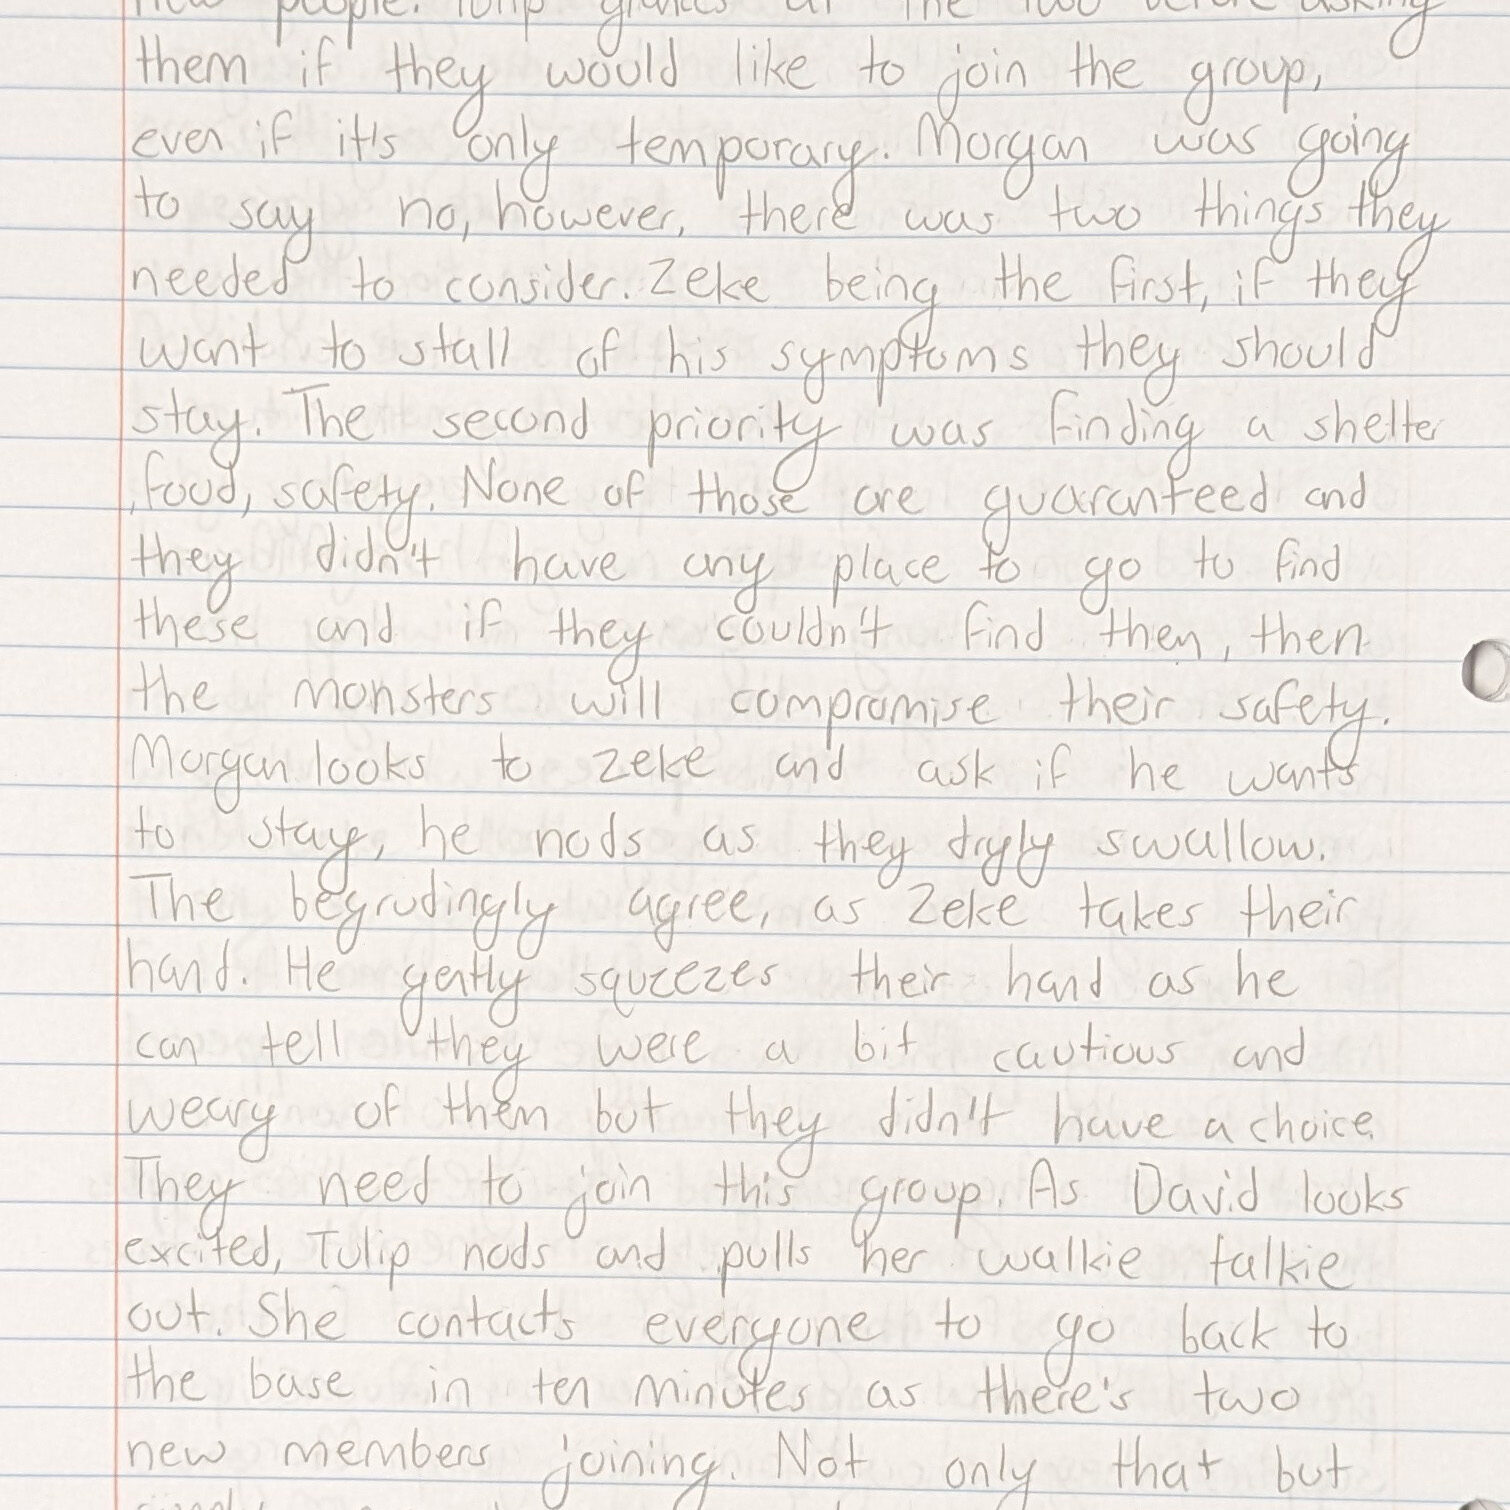 new people. Tulip glances at the two before asking
them if they would like to join the group,
even if it's only temporary. Morgan was going
to say no, however, there was two things they
needed to consider. Zeke being the first, if they
want to stall of his symptoms they should
stay. The second priority was finding a shelter
,food, safety. None of those are guaranteed and
they didn't have any place to go to find
these and if they couldn't find then, then
the monsters will compromise their safety.
Morgan looks to Zeke and ask if he wants
to stay, he nods as they dryly swallow.
The begrudingly agree, as Zeke takes their
hand. He gently squeezes their hand as he
can tell they were a bit cautious and
weary of them but they didn't have a choice.
They need to join this group. As David looks
excited, Tulip nods and pulls her walkie talkie
out. She contacts everyone to go back to
the base in ten minutes as there's two
new members joining. Not only that but